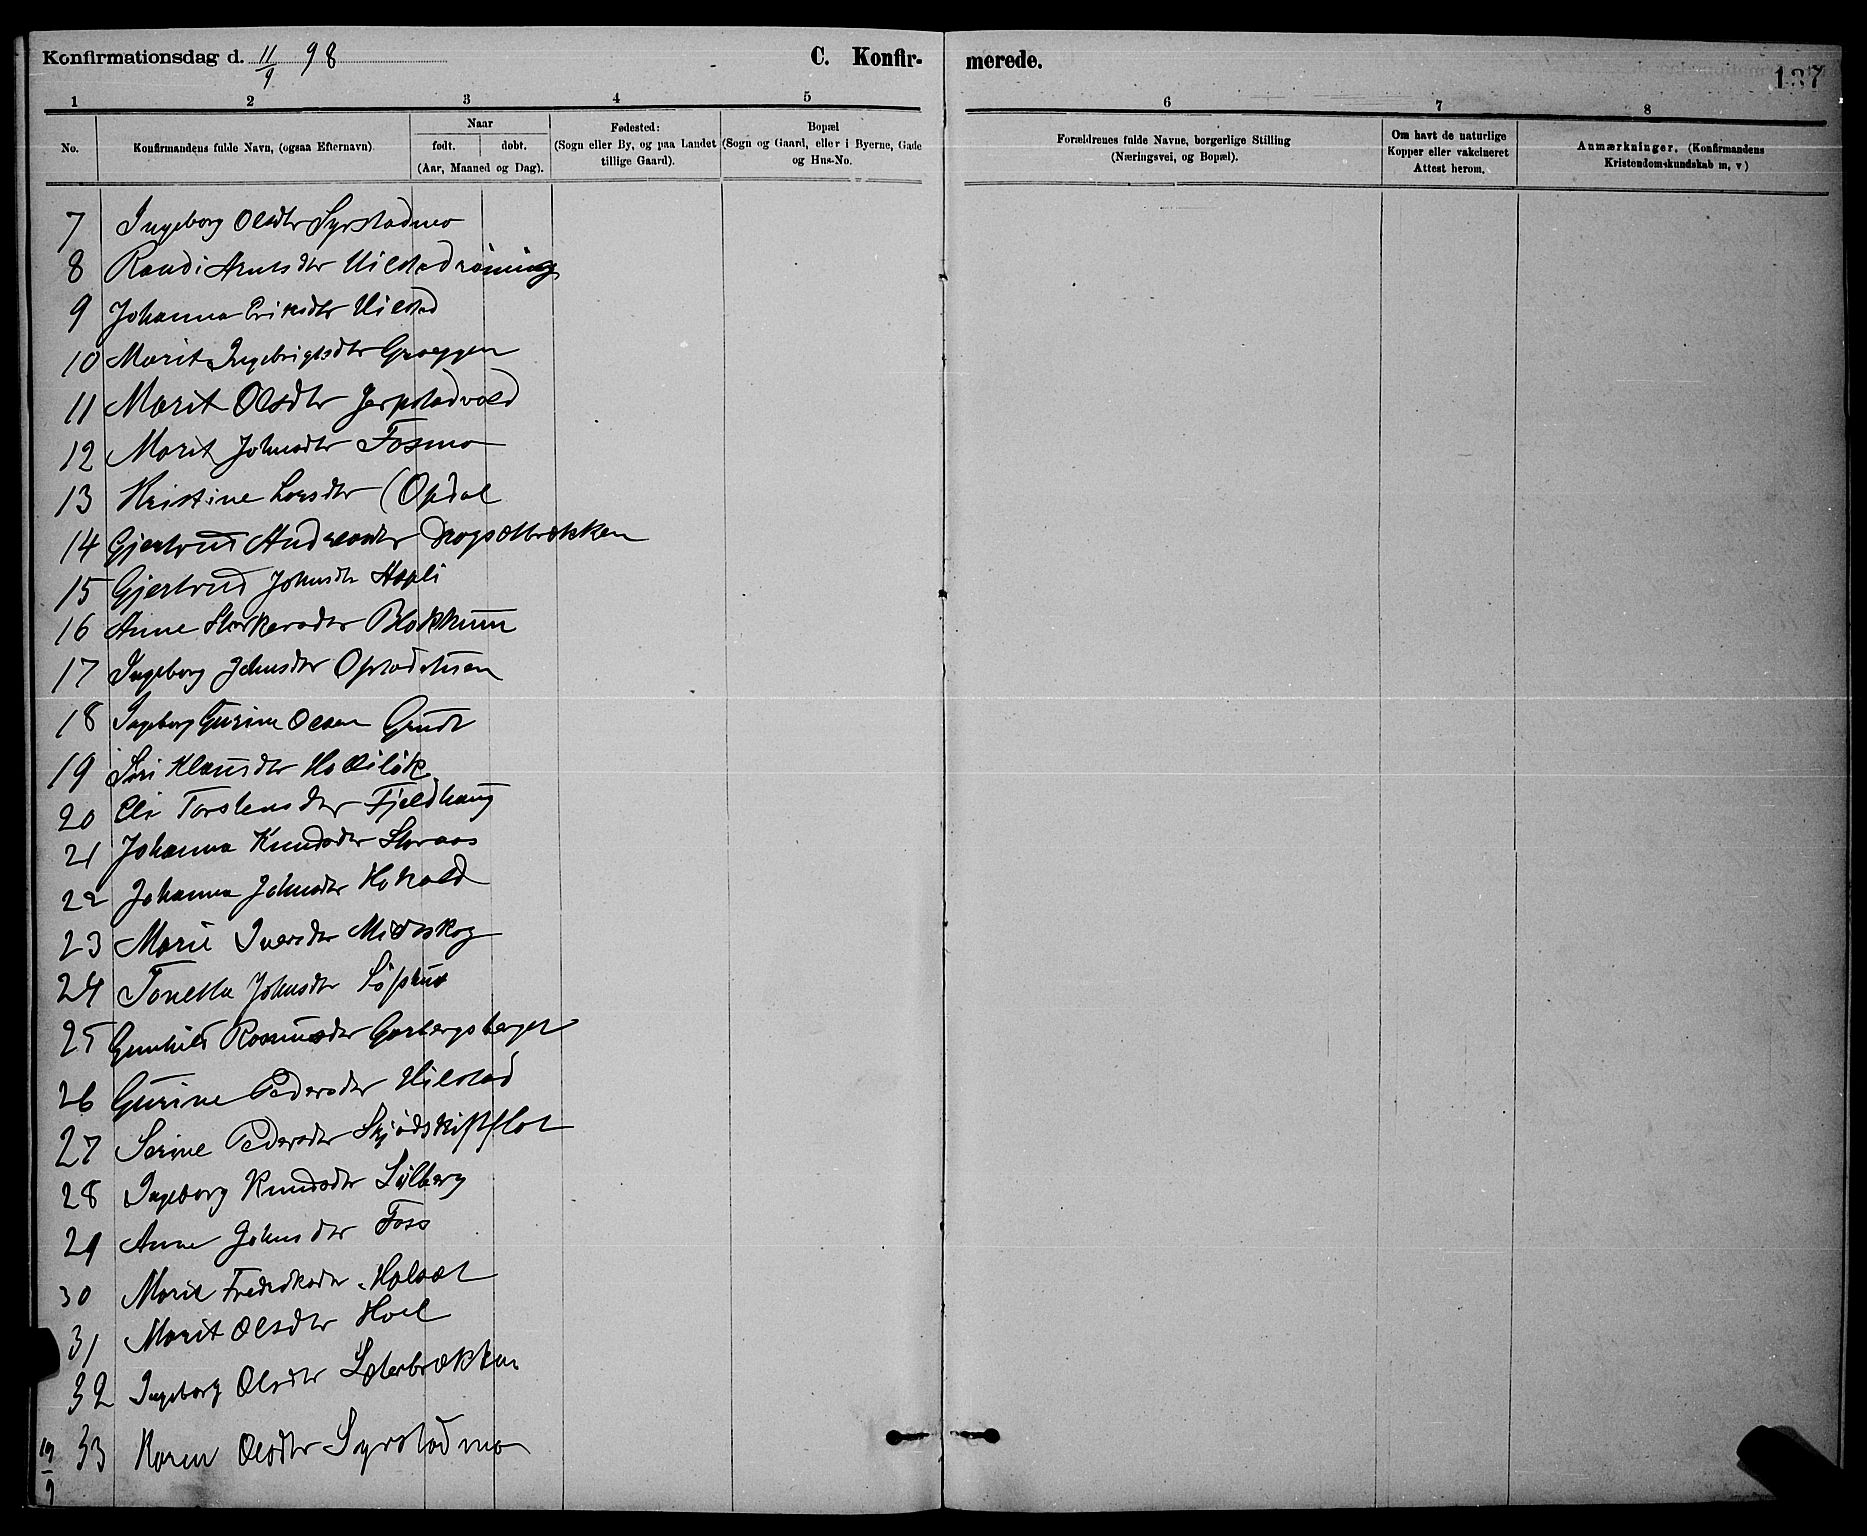 Konfirmationsdag d. 11/9 98
C. Konfirmerede.
137
1 2 3 4 5 6 7 8
No.
Konfirmandens fulde Navn, (ogsaa Efternavn)
Naar
født. døbt.
(Aar, Maaned og Dag).
Fødested:
(Sogn eller By, og paa Landet
tillige Gaard).
Bopæl
(Sogn og Gaard, eller i Byerne, Gade
og Hus-No.
Forældrenes fulde Navne, borgerlige Stilling
(Næringsvei, og Bopæl).
Om havt de naturlige
Kopper eller vakcineret
Attest herom.
Anmærkninger. (Konfirmandens
Kristendomskundskab m, v)
7 Ingeborg Olsdtr Syrstadmo
8 Randi Arntsdtr
9 Johanna Eriksdtr Vilstad
10 Marit Ingebrigtsdtr Græggen
11 Marit Olsdtr Jerpstadvold
12 Marit Johnsdtr Fosmo
13 Kristine Larsdtr Opdal
14 Gjertrud Andersdtr Drogsetbrækken
15 Gjertrud Johnsdtr
16 Anne Størkersdtr Blokkum
17 Ingeborg Johnsdtr
18 Ingeborg Gurine Olsen Grudt
19 Siri Klausdtr
20 Eli Torstensdtr Fjeldhaug
21 Johanna Knudsdtr Storaas
22 Johanna Johnsdtr
23 Marie Iversdtr Midtskog
24 Tonetta Johnsdtr
25 Gunhild Rasmusdtr Garbergsberget
26 Gurine Pedersdtr Vilstad
27 Serine Pedersdtr Skjødskiftflot
28 Ingeborg Knudsdtr Solberg
29 Anne Johnsdtr Foss
30 Marit Fredriksdtr Holset
31 Marit Olsdtr Hoel
32 Ingeborg Olsdtr Sæterbrækken
19/9 33 Karen Olsdtr Syrstadmo